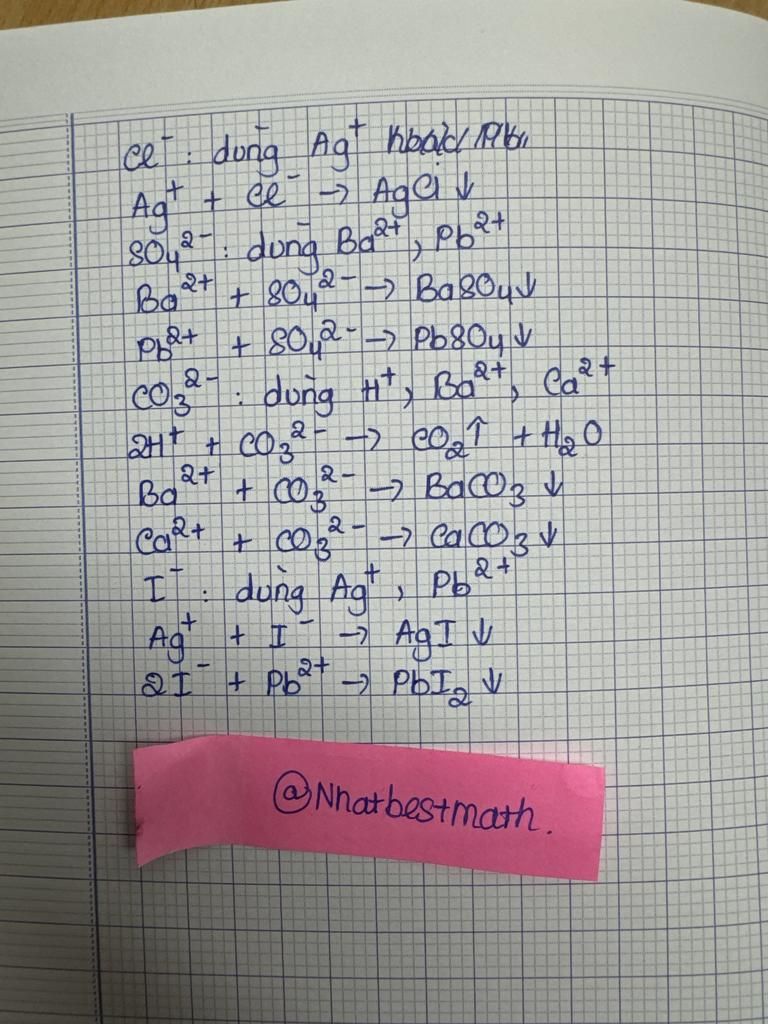 Cl⁻ : dùng Ag⁺
Ag⁺ + Cl⁻ → AgCl ↓
SO₄²⁻ : dùng Ba²⁺, Pb²⁺
Ba²⁺ + SO₄²⁻ → BaSO₄↓
Pb²⁺ + SO₄²⁻ → PbSO₄ ↓
CO₃²⁻ : dùng H⁺, Ba²⁺, Ca²⁺
2H⁺ + CO₃²⁻ → CO₂↑ + H₂O
Ba²⁺ + CO₃²⁻ → BaCO₃ ↓
Ca²⁺ + CO₃²⁻ → CaCO₃ ↓
I⁻ : dùng Ag⁺, Pb²⁺
Ag⁺ + I⁻ → AgI ↓
2I⁻ + Pb²⁺ → PbI₂ ↓
@Nhatbestmath.